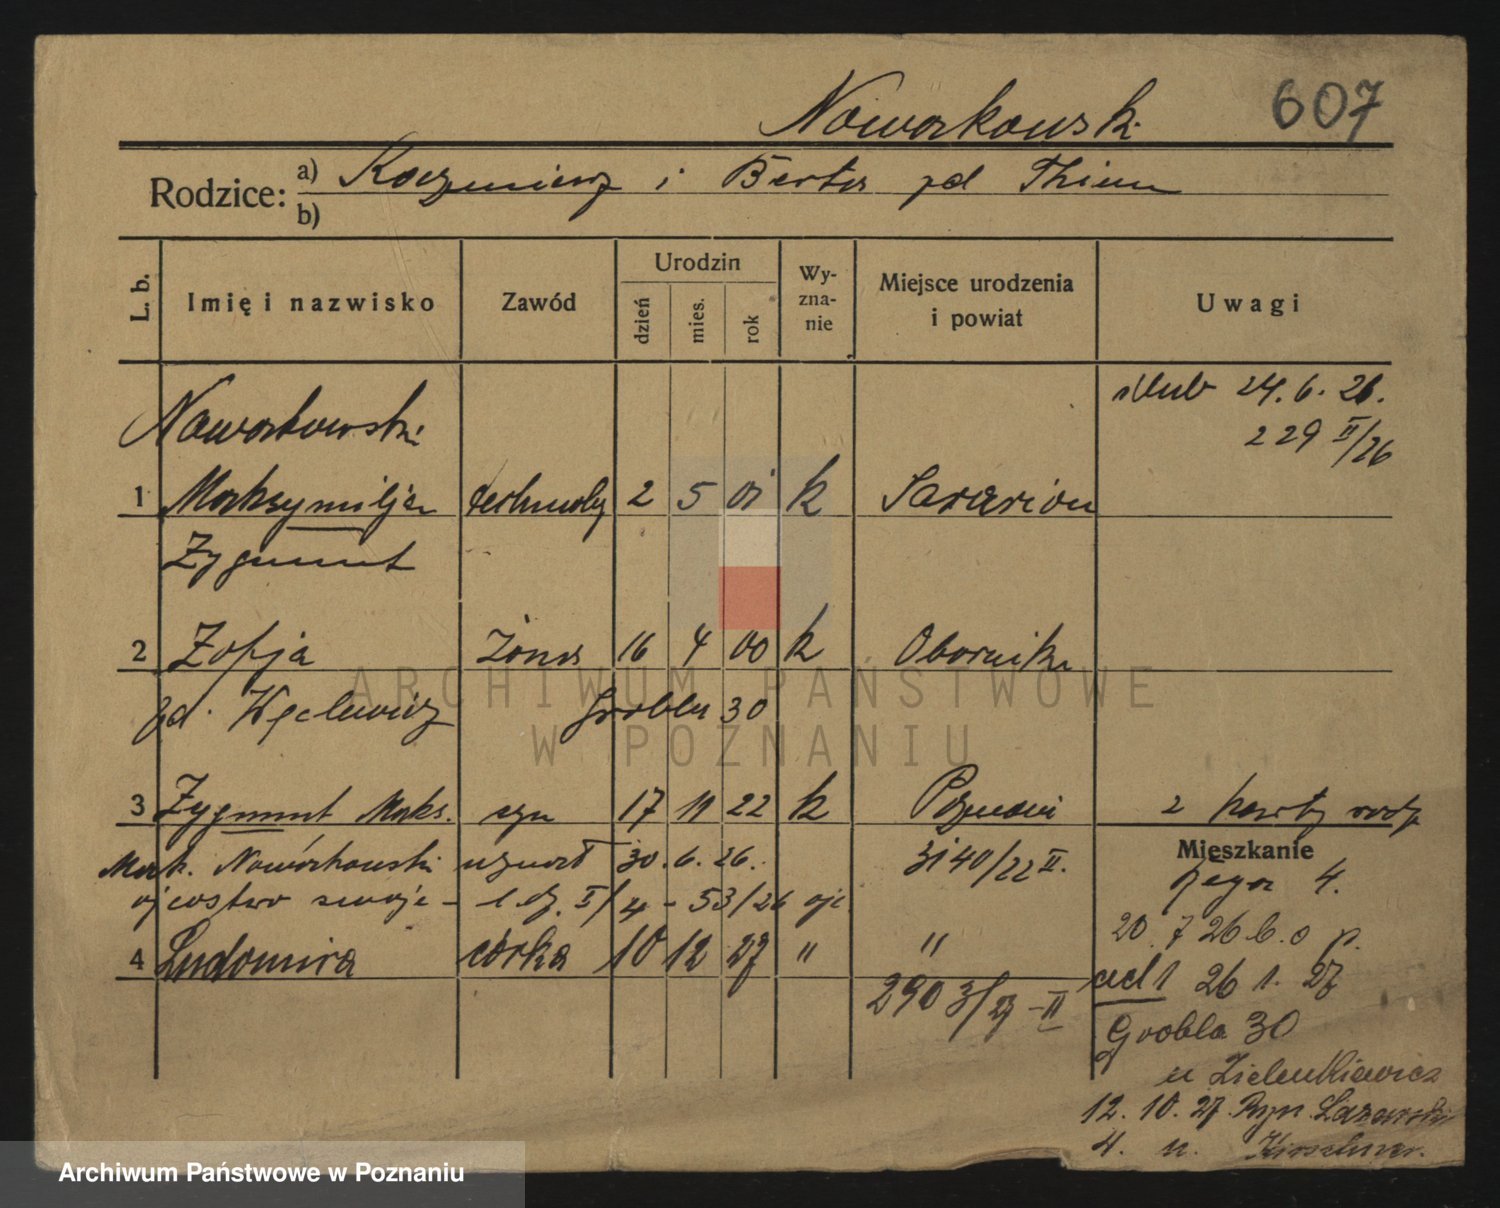 607
Noworkowski
Rodzice: a) Kazimierz i Berta zd Thiem
b)
L. b. Imię i nazwisko Zawód Urodzin dzień mies. rok Wy-zna-nie Miejsce urodzenia i powiat Uwagi
ślub 24. 6. 26.
Noworkowski 229 II/26
1 Maksymiljan 2 5 01 k
Zygmunt
2 Zofja żona 16 4 00 k Oborniki
zd. Węclewicz Grobla 30
3 Zygmunt Maks. syn 17 11 22 k Poznań 2 karty rodz
Mak. Noworkowski uznał 30. 6. 26. 3140/22 II. Mieszkanie
ojcostwo swoje - l. dz. I/4 - 53/26 4.
20. 7 26 b. o p.
4 Ludomira córka 10 12 27 " "
ad 1 26 1. 27
2903/27 - II
Grobla 30
u Zielenkiewicz
12. 10. 27. Ryn. Łazarski
4. u. Kirschner.
ARCHIWUM PAŃSTWOWE
W POZNANIU
Archiwum Państwowe w Poznaniu